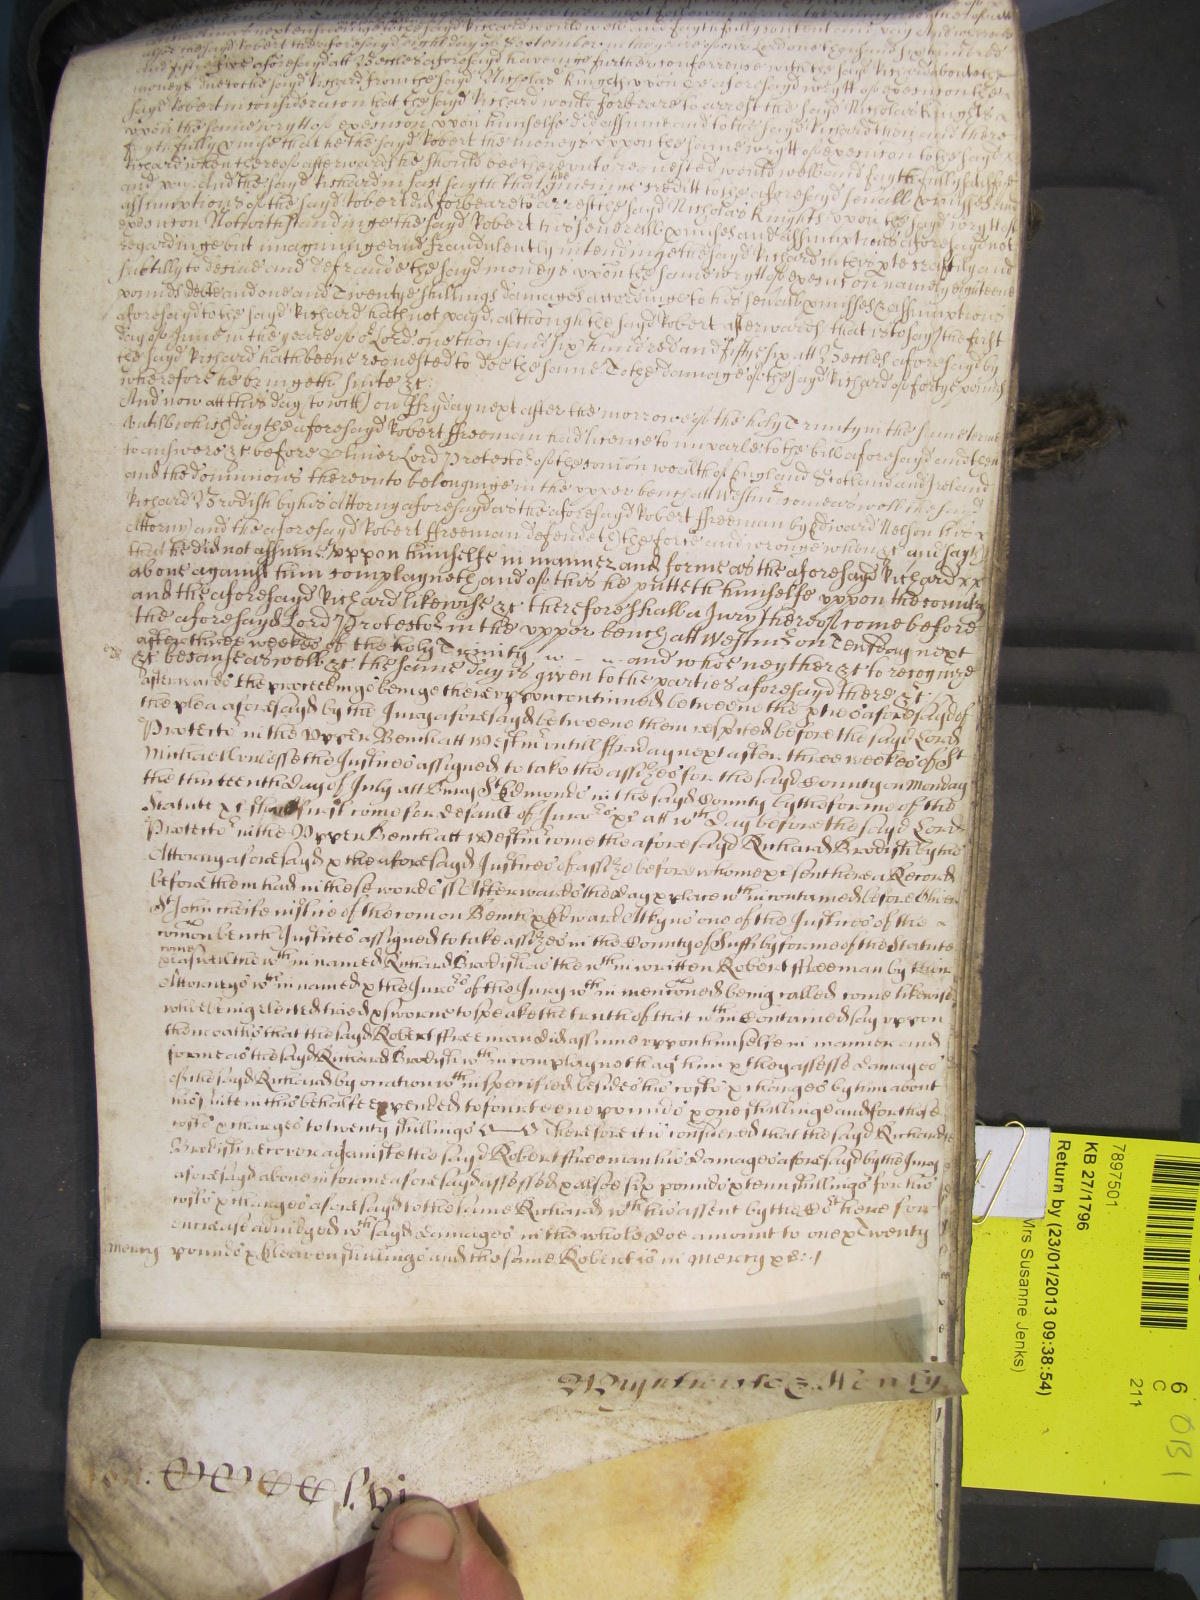 after the sayd Robert the aforesayd eight day of September in the yeare of our Lord one thousand six hundred
and fiftie five aforesayd att Beccles aforesayd haveinge further conference with the sayd Richard about the
moneys due to the sayd Richard from the sayd Nicholas Knights uppon the aforesayd wrytt of execucon the
sayd Robert in consideracon that the sayd Richard would forbeare to arrest the sayd Nicholas Knights
uppon the same wrytt of execucon uppon himselfe did assume and to the sayd Richard then and there
faythfully promise that he the sayd Robert the moneys uppon the same wrytt of execucon to the sayd
Richard when thereof afterwards he should bee thereunto requested would well and faythfully satisfie
and pay And the sayd Richard in fact sayth that he giveinge creditt to the aforesayd severall promisses and
assumptions of the sayd Robert did forbeare to arrest the sayd Nicholas Knights uppon the sayd wrytt of
execucon Notwithstandinge the sayd Robert his severall promises and assumptions aforesayd not
regardinge but imagininge and fraudulently intendinge the sayd Richard in this craftily and
subtilly to deceive and defraude the sayd moneys uppon the same wrytt of execucon namely eighteene
pounds debt and one and Twentye shillings damages accordinge to his severall promisses & assumptions
aforesayd to the sayd Richard hath not payd, although the sayd Robert afterwards that is to say the first
day of June in the yeare of or Lord one thousand six hundred and fiftye six att Beccles aforesayd by
the sayd Richard hath beene requested to doe the same To the damage of the sayd Richard of fortye pounds
wherefore he bringeth suite &c:
And now att this day to witt) on Ffryday next after the morrowe of the holy Trinity in the same terme
Untill which day the aforesayd Robert Ffreeman had licence to imparle to the bill aforesayd and then
to answere &c before Oliver Lord Protector of the comon wealth of England Scotland and Ireland
and the dominions thereunto belonginge in the upper bench att Westmr come as well the sayd
Richard Brodish by his Attorny aforesayd as the aforesayd Robert Ffreeman by Edward Nelson his
Attorny and the aforesayd Robert Ffreeman defendeth the force and wronge when &c and sayth
that he did not assume uppon himselfe in manner and forme as the aforesayd Richard
above against him complayneth and of this he putteth himselfe uppon the country
and the aforesayd Richard likewise &c therefore shall a Jury thereof come before
the aforesayd Lord Protector in the upper bench att Westmr on Tewsday next
after three weekes of the holy Trinity and who neyther &c to recognize
&c because as well &c the same day is given to the parties aforesayd there &c
Afterwards the proceedings beinge thereuppon continued betweene the pties aforesayd of
the plea aforesayd by the Jury aforesayd betweene them respited before the sayd Lord
Protector in the Upper Bench att Westmr untill Ffraday next after three weekes of St
Michaell unlesse the Justices assigned to take the assizes for the sayd County on Monday
the thirteenth day of July att Bury St Edmonds in the sayd County by the forme of the
Statute &c shall first come for default of Jurors &c att wch day before the sayd Lord
Protector in the Upper Bench att Westmr come the aforesayd Richard Brodish by his
Attorny aforesayd & the aforesayd Justices of assize before whome &c sent here a Record
before them had in these words ss Afterwards the day & place wthin contained before Oliver
St John cheife justice of the comon Bench & Edward Atkyns one of the Justices of the
comon bench Justices assigned to take assizes in the County of Suff by forme of the Statute
come
&c aswell the wthin named Richard Brodish as the wthin written Robert Ffreeman by their
Attornys wthin named & the Jurors of the Jury wthin menconed being called come likewise
who being elected tried & sworne to speake the truth of that wthin Contained say uppon
their oathes that the sayd Robert Ffreeman did assume uppon himselfe in manner and
forme as the sayd Richard Brodish wthin complayneth agt him & they assesse damages
of the sayd Richard by occation wthin specified besides his costs & charges by him about
his suite in this behalfe expended to fourteene pounds & one shillinge and for those
costs & charges to twenty shillings Therefore it is considered that the sayd Richard
Brodish recover against the sayd Robert Ffreeman his damages aforesayd by the Jury
aforesayd above in forme aforesayd assessed & alsoe six pounds & tenn shillings for his
costs & charges aforesayd to the same Richard wth his assent by the Cort here for
encrease adiudged wch sayd damages in the whole doe amount to one & Twenty
Mercy pounds & Eleaven shillings and the same Robert is in Mercy &c:
Wightwicke & Henly
7897501
KB 27/1796
Return by (23/01/2013 09:38:54)
Mrs Susanne Jenks)
6
C
211